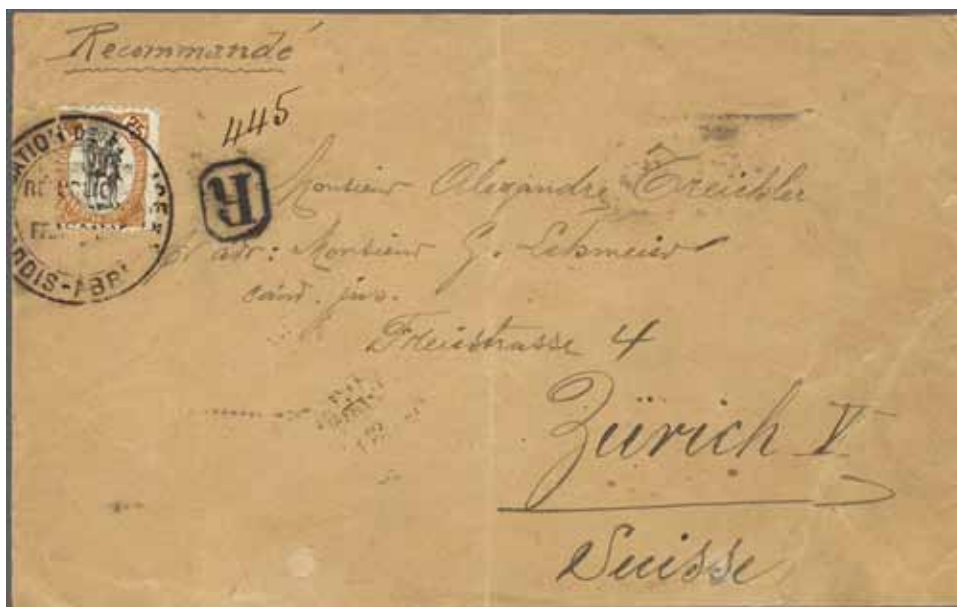 Recommandé
445
R
25
Monsieur Alexandre Treichler
adr: Monsieur G.
cand. jur.
Freiestrasse 4
Zürich V
Suisse
DDIS-ABB